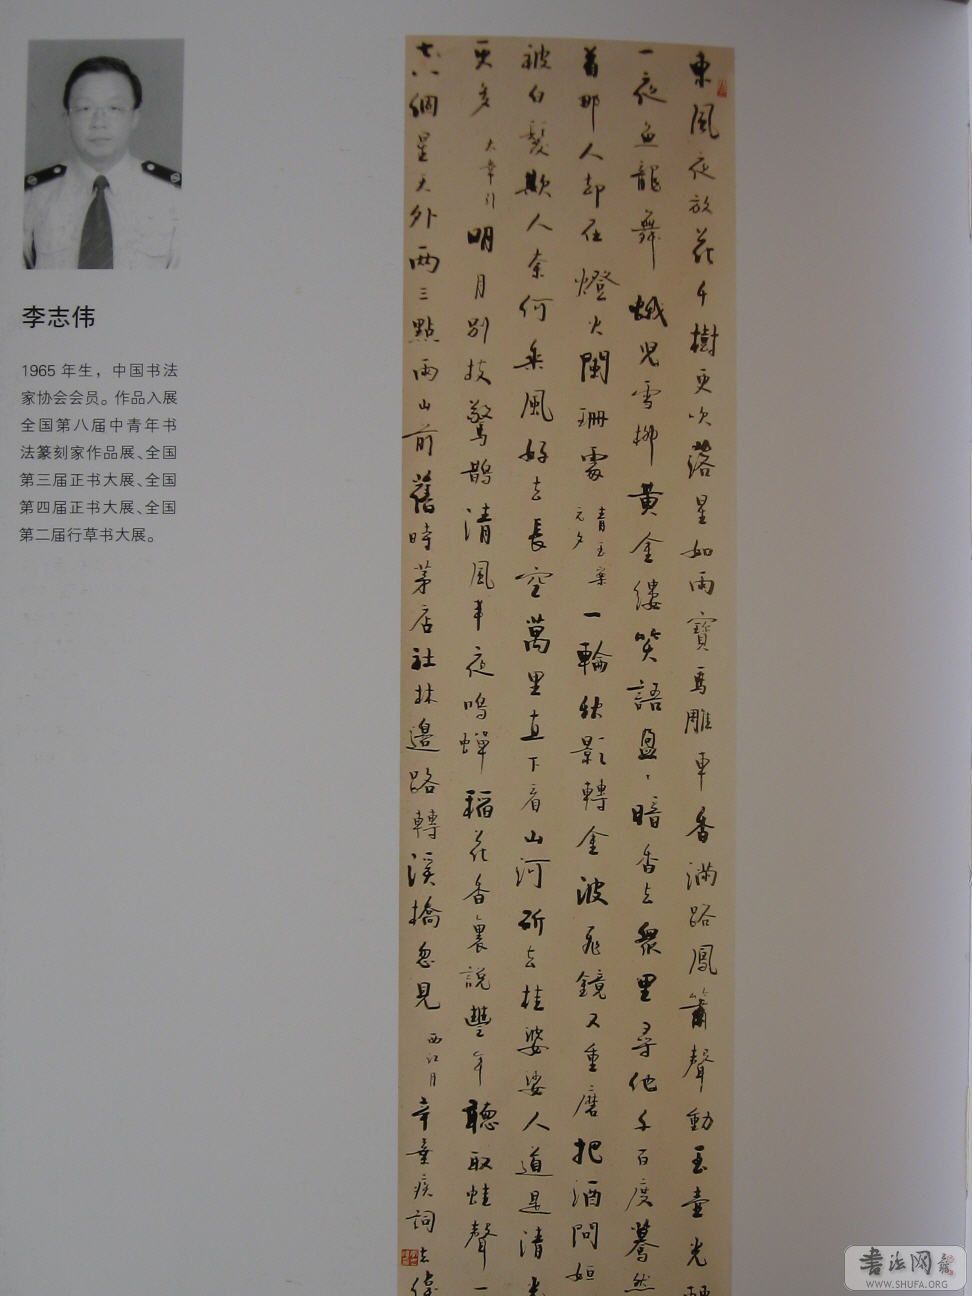 李志伟
1965 年生，中国书法
家协会会员。作品入展
全国第八届中青年书
法篆刻家作品展、全国
第三届正书大展、全国
第四届正书大展、全国
第二届行草书大展。
東風夜放花千樹更吹落星如雨寶馬雕車香滿路鳳簫聲動玉壺光轉
一夜魚龍舞蛾兒雪柳黃金縷笑語盈、暗香去眾里尋他千百度驀然
首那人却在燈火闌珊處 青玉案 元夕 一輪秋影轉金波飛鏡又重磨把酒問姮
被白髮欺人奈何乘風好去長空萬里直下看山河斫去桂婆娑人道是清光
更多 太常引 明月別枝驚鵲清風半夜鳴蟬稻花香裏說豐年聽取蛙聲一
七八個星天外兩三點雨山前舊時茅店社林邊路轉溪橋忽見 西江月 辛棄疾詞志偉
书法网
WWW.SHUFA.ORG